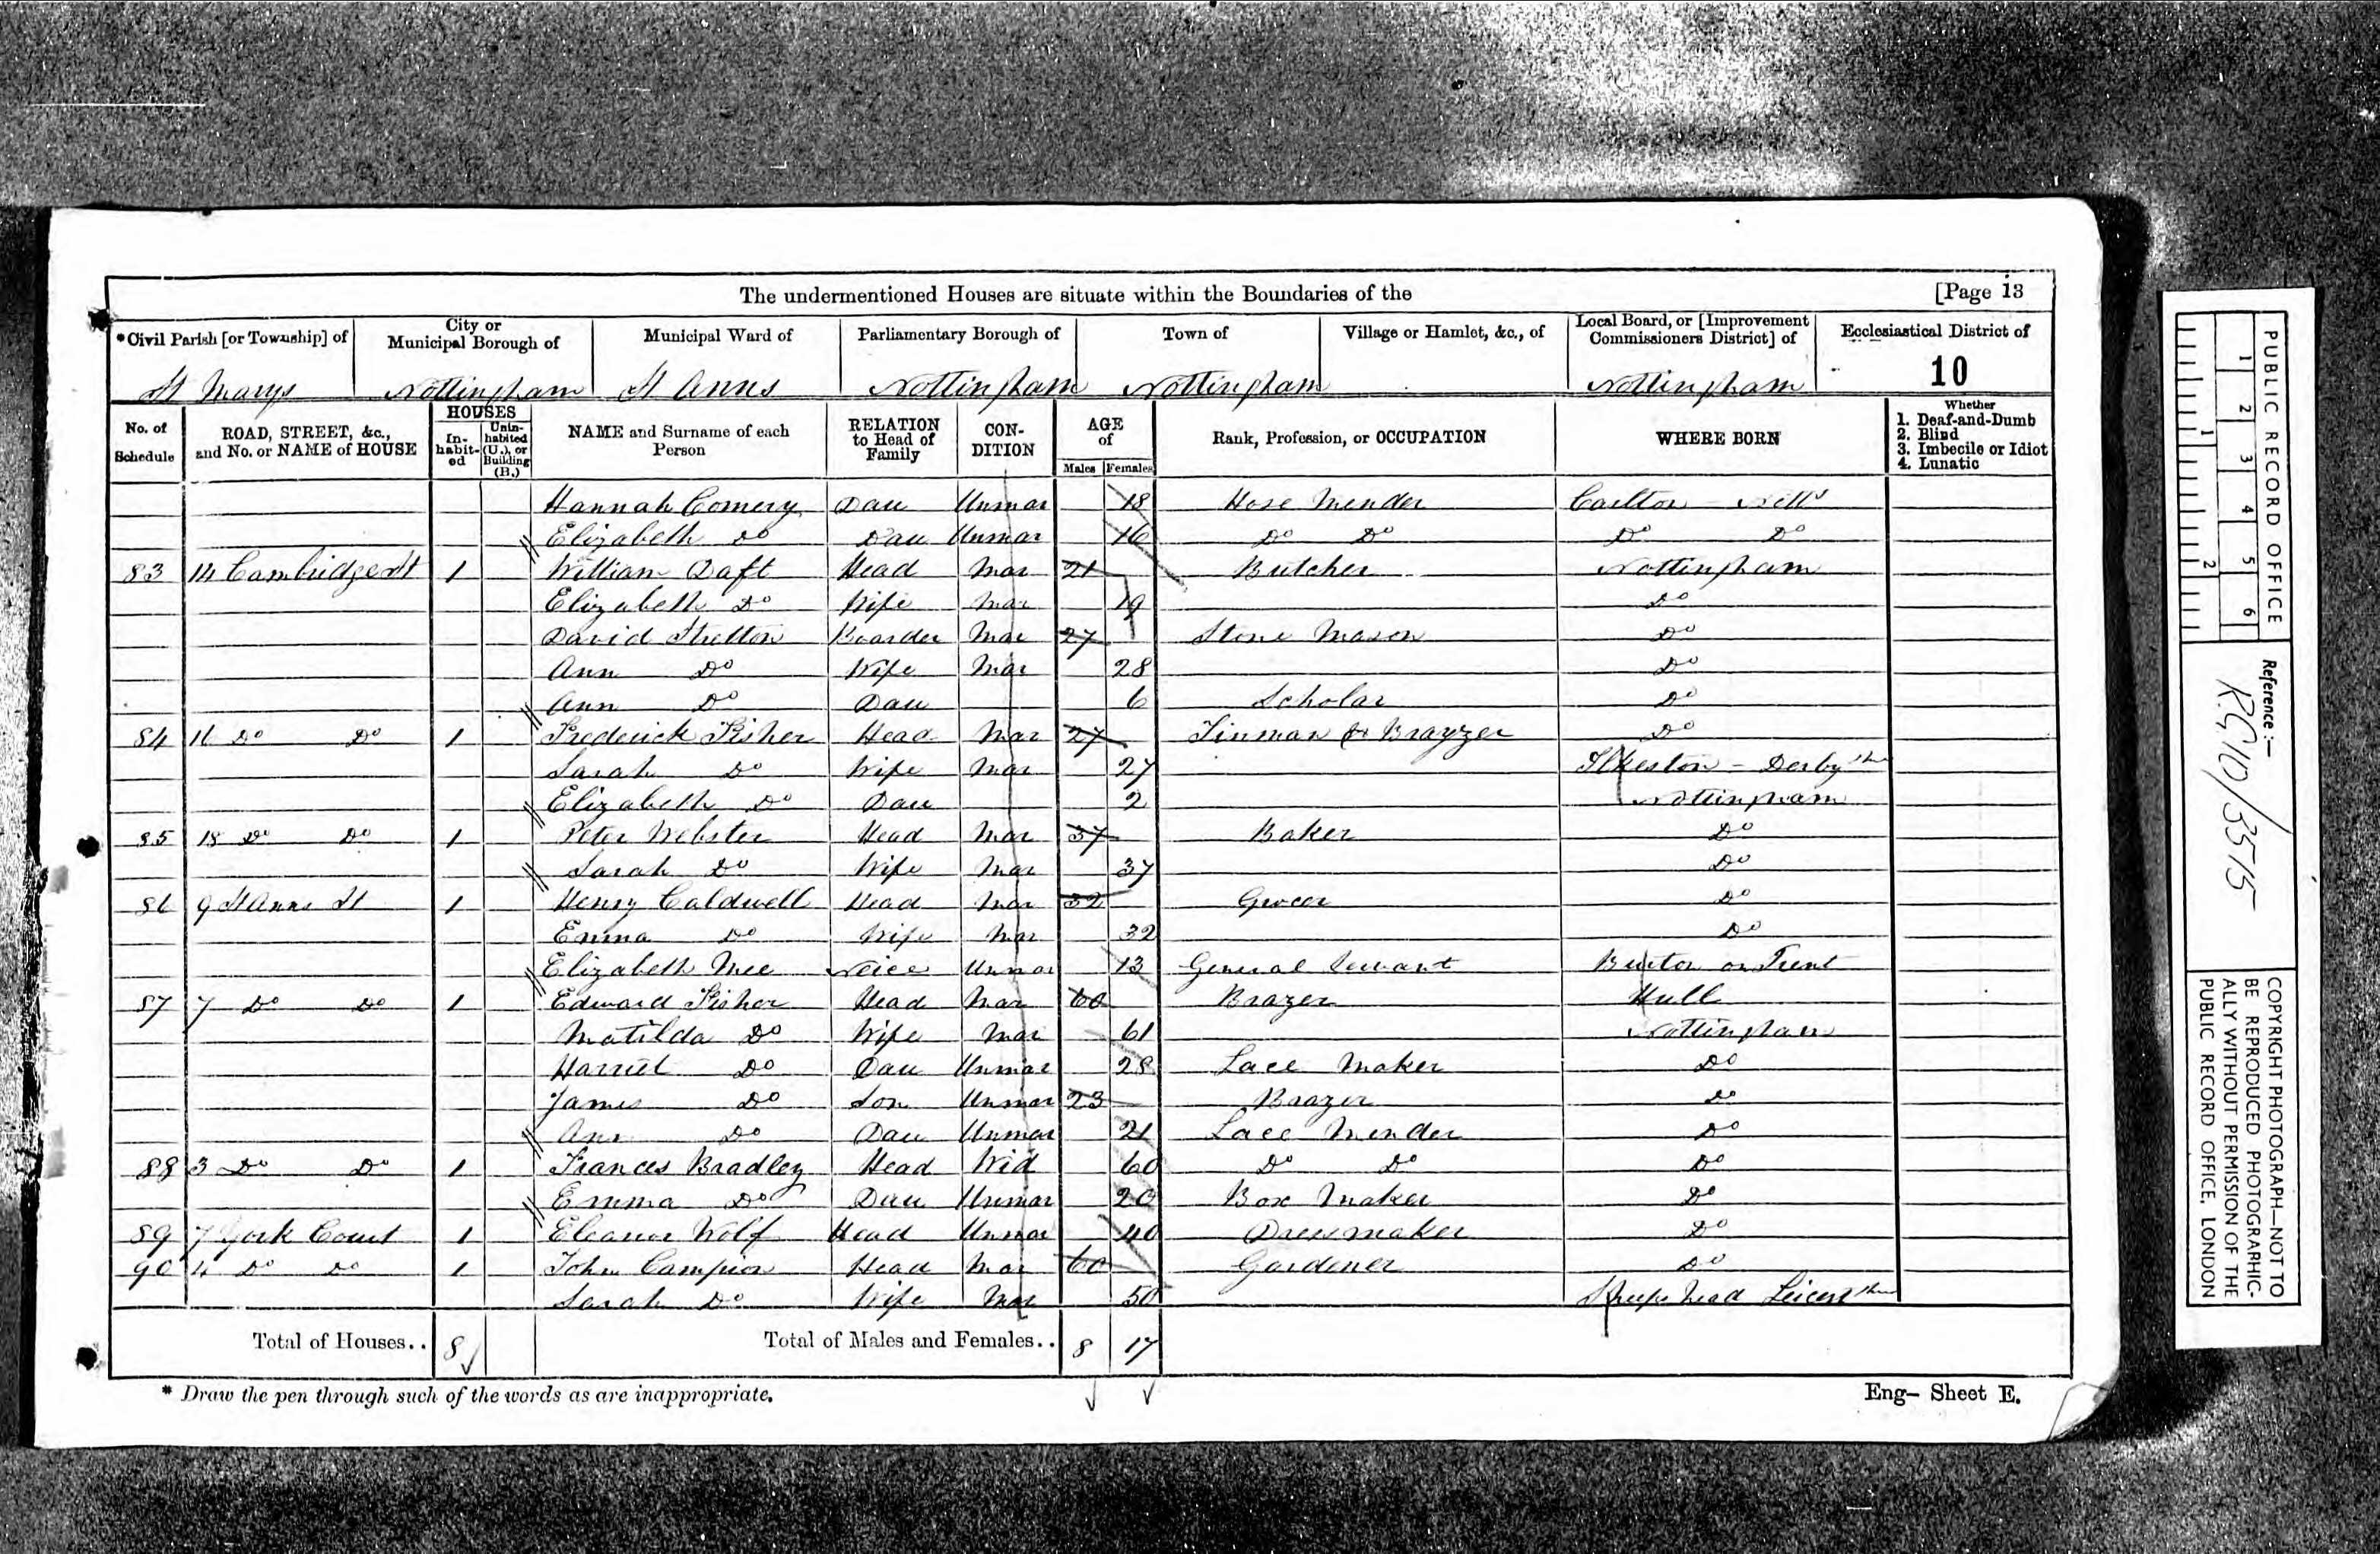 The undermentioned Houses are situate within the Boundaries of the [Page 13
*Civil Parish [or Township] of City or Municipal Borough of Municipal Ward of Parliamentary Borough of Town of Village or Hamlet, &c., of Local Board, or [Improvement Commissioners District] of Ecclesiastical District of
St Marys Nottingham St Anns Nottingham Nottingham Nottingham 10
No. of Schedule ROAD, STREET, &c., and No. or NAME of HOUSE HOUSES In-habit-ed Unin-habited (U.), or Building (B.) NAME and Surname of each Person RELATION to Head of Family CON-DITION AGE of Males Females Rank, Profession, or OCCUPATION WHERE BORN Whether 1. Deaf-and-Dumb 2. Blind 3. Imbecile or Idiot 4. Lunatic
Hannah Comery Dau Unmar 18 Hose Mender Carlton - Notts
Elizabeth Do Dau Unmar 16 Do Do Do Do
83 14 Cambridge St 1 William Daft Head Mar 21 Butcher Nottingham
Elizabeth Do Wife Mar 19 Do
David Stretton Boarder Mar 27 Stone Mason Do
Ann Do Wife Mar 28 Do
Ann Do Dau 6 Scholar Do
84 16 Do Do 1 Frederick Fisher Head Mar 27 Tinman & Brayzer Do
Sarah Do Wife Mar 27 Ilkeston - Derbyshr
Elizabeth Do Dau 2 Nottingham
85 18 Do Do 1 Peter Webster Head Mar 37 Baker Do
Sarah Do Wife Mar 37 Do
86 9 St Anns St 1 Henry Caldwell Head Mar 32 Grocer Do
Emma Do Wife Mar 32 Do
Elizabeth Mee Neice Unmar 13 General Servant Burton on Trent
87 7 Do Do 1 Edward Fisher Head Mar 60 Brazer Hull
Matilda Do Wife Mar 61 Nottingham
Harriet Do Dau Unmar 28 Lace Maker Do
James Do Son Unmar 23 Brazer Do
Ann Do Dau Unmar 21 Lace Mender Do
88 3 Do Do 1 Frances Bradley Head Wid 60 Do Do Do
Emma Do Dau Unmar 20 Box Maker Do
89 7 York Court 1 Eleanor Wolf Head Unmar 40 Dressmaker Do
90 4 Do Do 1 John Campion Head Mar 60 Gardener Do
Sarah Do Wife Mar 50 Sheepshead Leicestshr
Total of Houses.. 8 Total of Males and Females.. 8 17
* Draw the pen through such of the words as are inappropriate. Eng- Sheet E.
PUBLIC RECORD OFFICE
1 2 3 4 5 6
1 2
Reference:—
R.G.10/3515
COPYRIGHT PHOTOGRAPH—NOT TO
BE REPRODUCED PHOTOGRAPHIC-
ALLY WITHOUT PERMISSION OF THE
PUBLIC RECORD OFFICE, LONDON